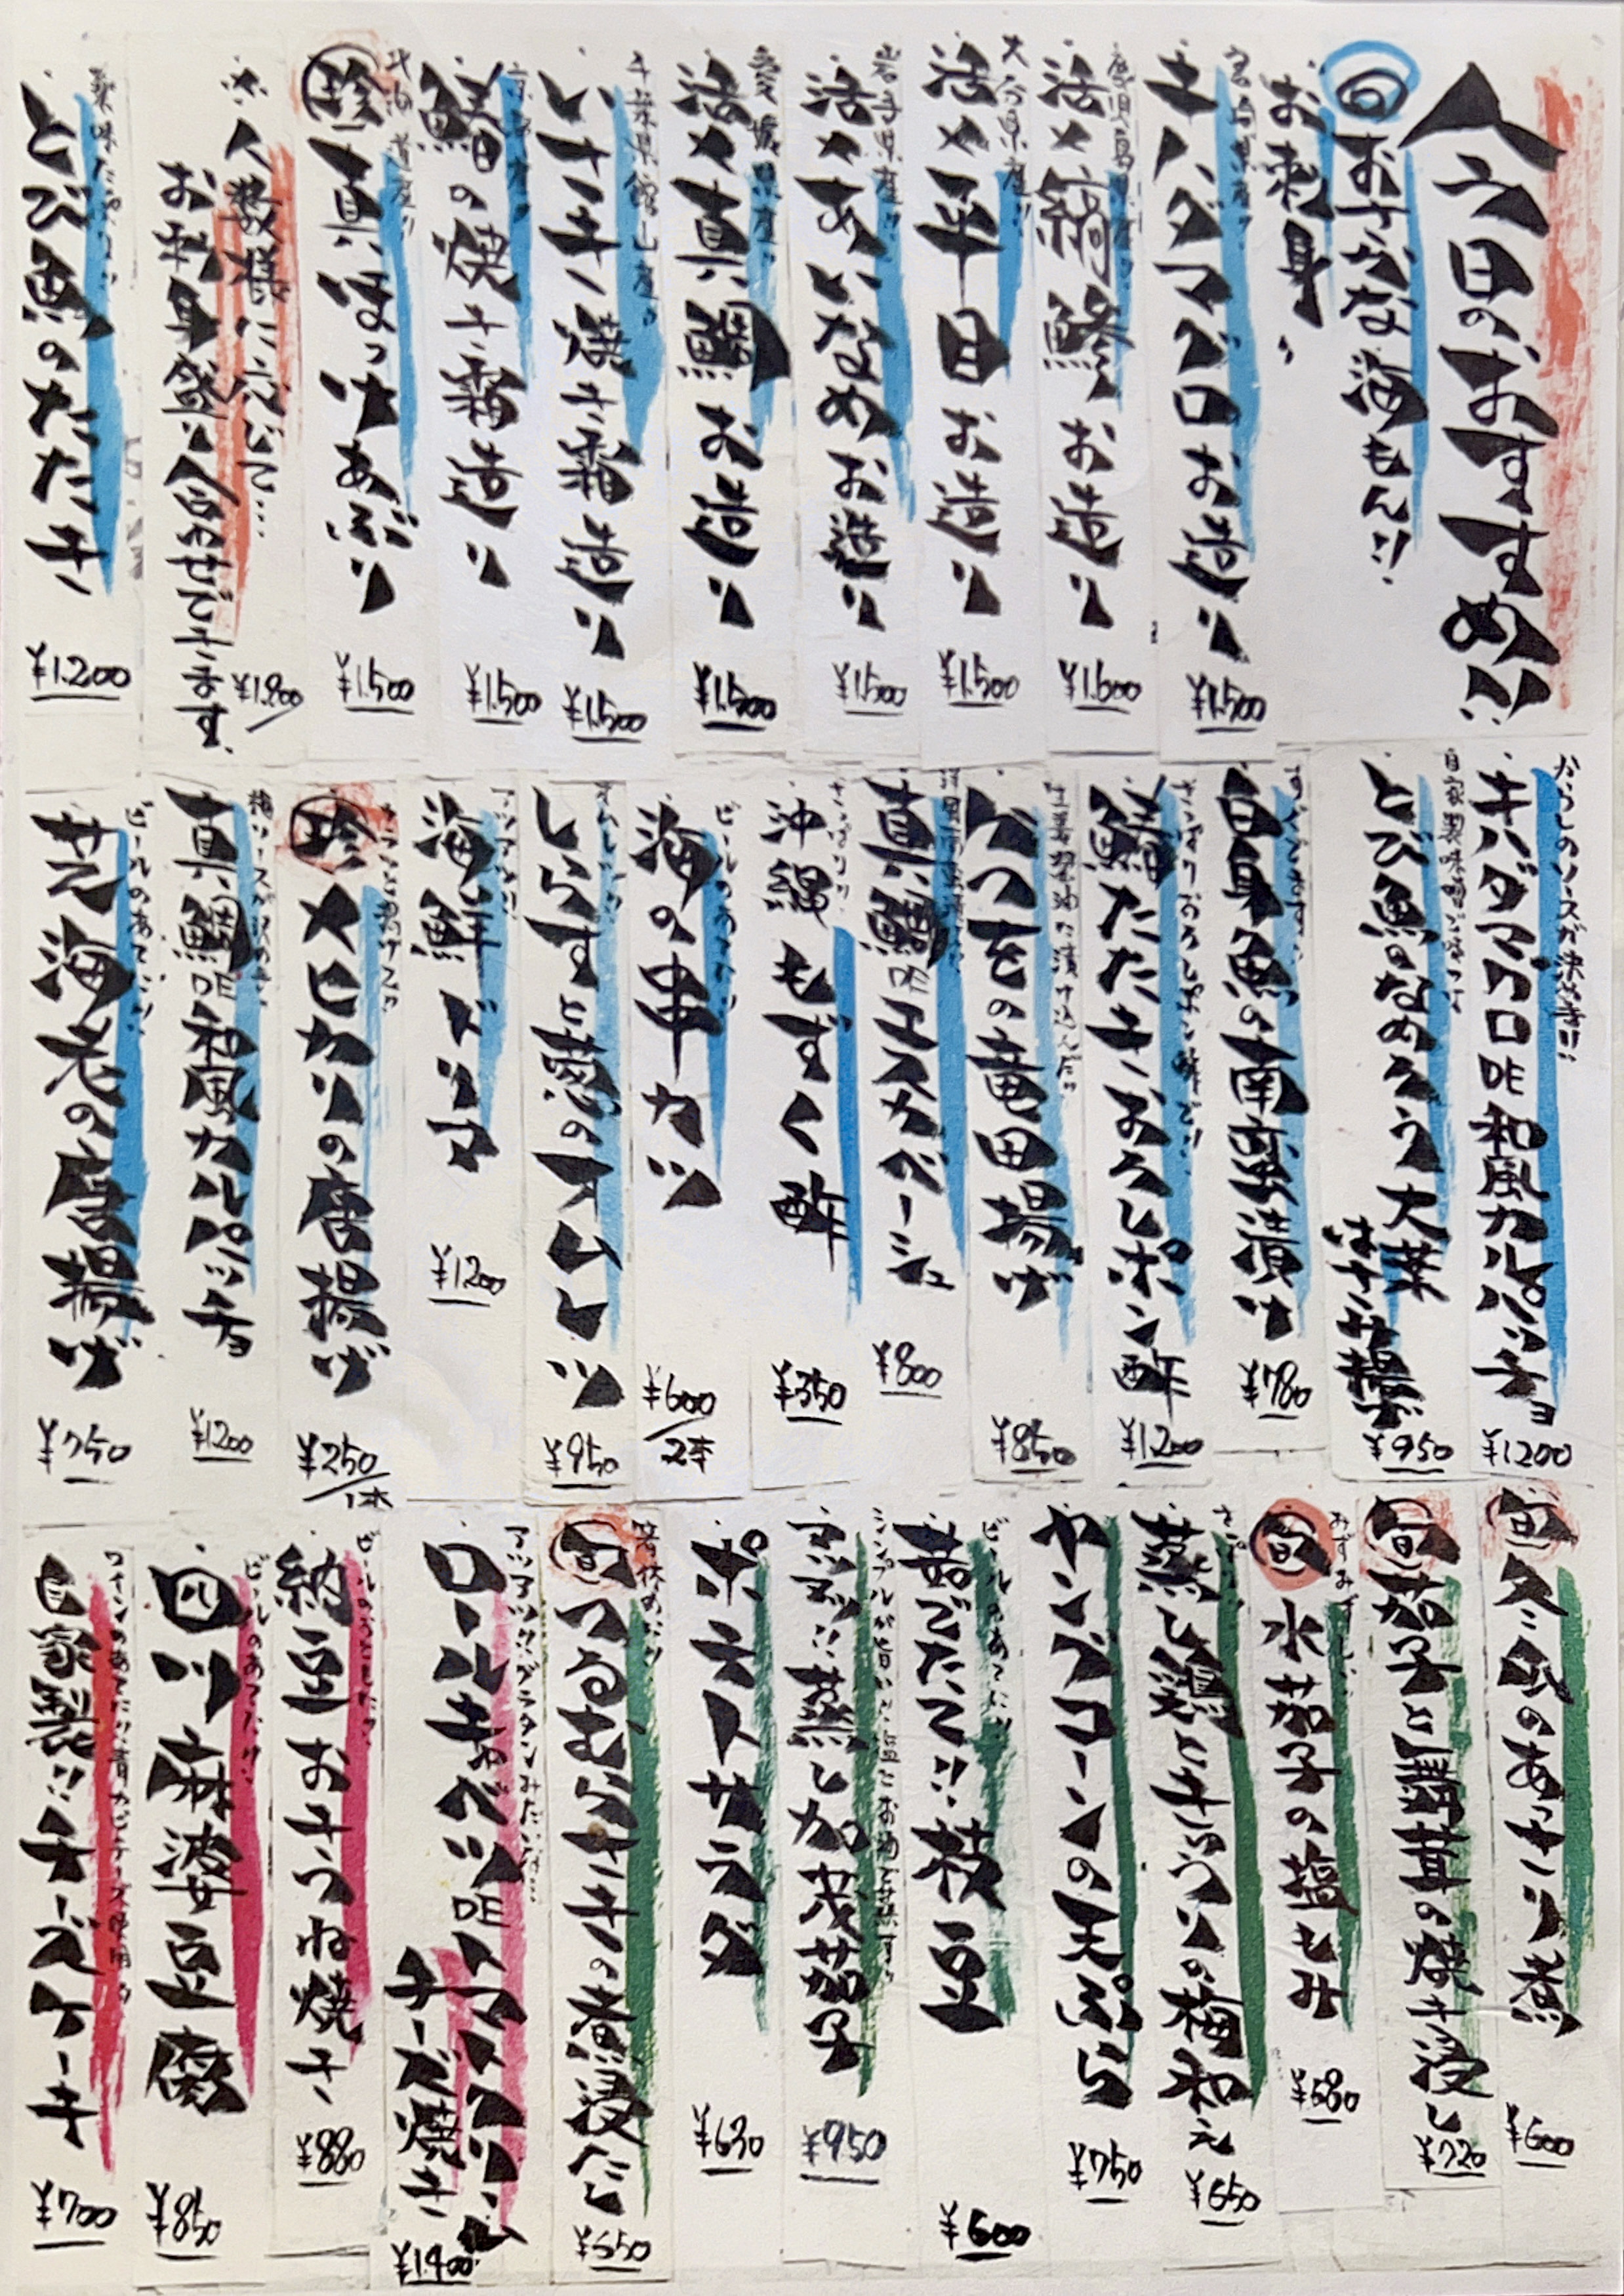 今日のおすすめ!!
おさかな海もん!!
お刺身
宮崎県産!!
キハダマグロお造り
¥1.500
鹿児島県産!!
活〆縞鯵お造り
¥1.600
大分県産!!
活〆平目お造り
¥1.500
岩手県産!!
活〆あいなめお造り
¥1.500
愛媛県産!!
活〆真鯛お造り
¥1.500
千葉県館山産!!
いさき焼き霜造り
¥1.500
京都産!!
鰆の焼き霜造り
¥1.500
北海道産!!
珍 真ほっけあぶり
¥1.500
人数様に応じて…
お刺身盛り合わせできます
¥1.800
薬味たっぷり!!
とび魚のたたき
¥1.200
からしのソースが決め手!!
キハダマグロDE和風カルパッチョ
¥1200
とび魚のなめろう大葉
はさみ揚げ
¥950
白身魚の南蛮漬け
¥780
さっぱりおろしポン酢で!!
鰆たたきおろしポン酢
¥1200
生姜醤油に漬け込んだ!!
かつをの竜田揚げ
¥850
真鯛DEエスカベーシュ
¥800
さっぱり!!
沖縄もずく酢
¥350
ビールのあてに!!
海の串カツ
¥600/2本
しらすと葱のオムレツ
¥950
アツアツ!!
海鮮ドリア
¥1200
珍 メヒカリの唐揚げ
¥250/1本
梅ソースが決め手
真鯛DE和風カルパッチョ
¥1200
ビールのあてに!!
芝海老の唐揚げ
¥750
旬 冬瓜のあっさり煮
¥600
旬 茄子と舞茸の焼き浸し
¥720
みずみずしい
旬 水茄子の塩もみ
¥580
さっぱり
蒸し鶏ときゅうりの梅和え
¥650
ヤングコーンの天ぷら
¥750
ビールのあてに!!
茹でたて!!枝豆
¥600
アツアツ!!蒸し加茂茄子
¥950
ポテトサラダ
¥630
箸休めに!!
旬 つるむらさきの煮浸し
¥550
アツアツ!!グラタンみたいな…
ロールキャベツDEトマトクリーム
チーズ焼き
¥1400
ビールのおともに!!
納豆おきつね焼き
¥880
ビールのあてに!!
四川麻婆豆腐
¥850
ワインのあてに!!青カビチーズ使用!!
自家製!!チーズケーキ
¥700